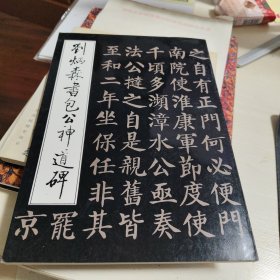 之自有正門何必便門
南院使淮康軍節度使
千頃多瀕漳水公亟奏
法公撻之自是親舊皆
至和二年坐保任非其
罷
京
劉炳森書包公神道碑